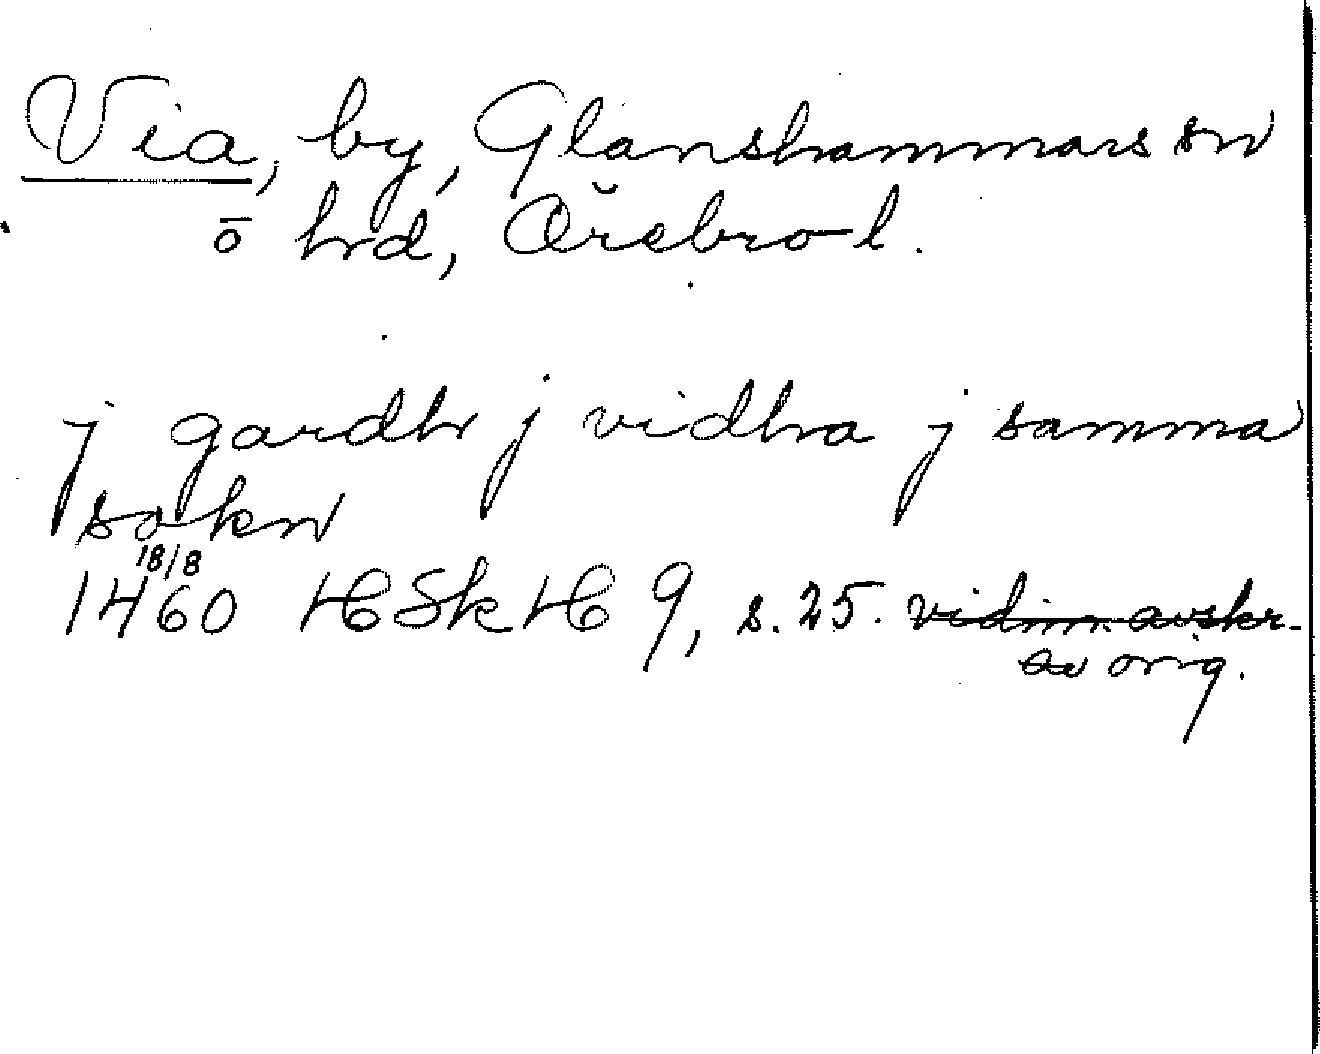 Via, by, Glanshammars sn
o hrd, Örebro l.
j gardh j vidha j samma
sokn
18/8
1460 HSkH 9, s. 25. vidim. avskr.
av orig.